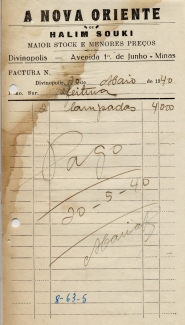 A NOVA ORIENTE
DE
HALIM SOUKI
MAIOR STOCK E MENORES PREÇOS
Divinopolis - Avenida 1º. de Junho - Minas
FACTURA N.
Divinopolis, 20 Maio de 1940.
Illmo. Snr. Prefeitura
2 Lampadas 4000
Pago
20-5-40
Maria
8-63-5